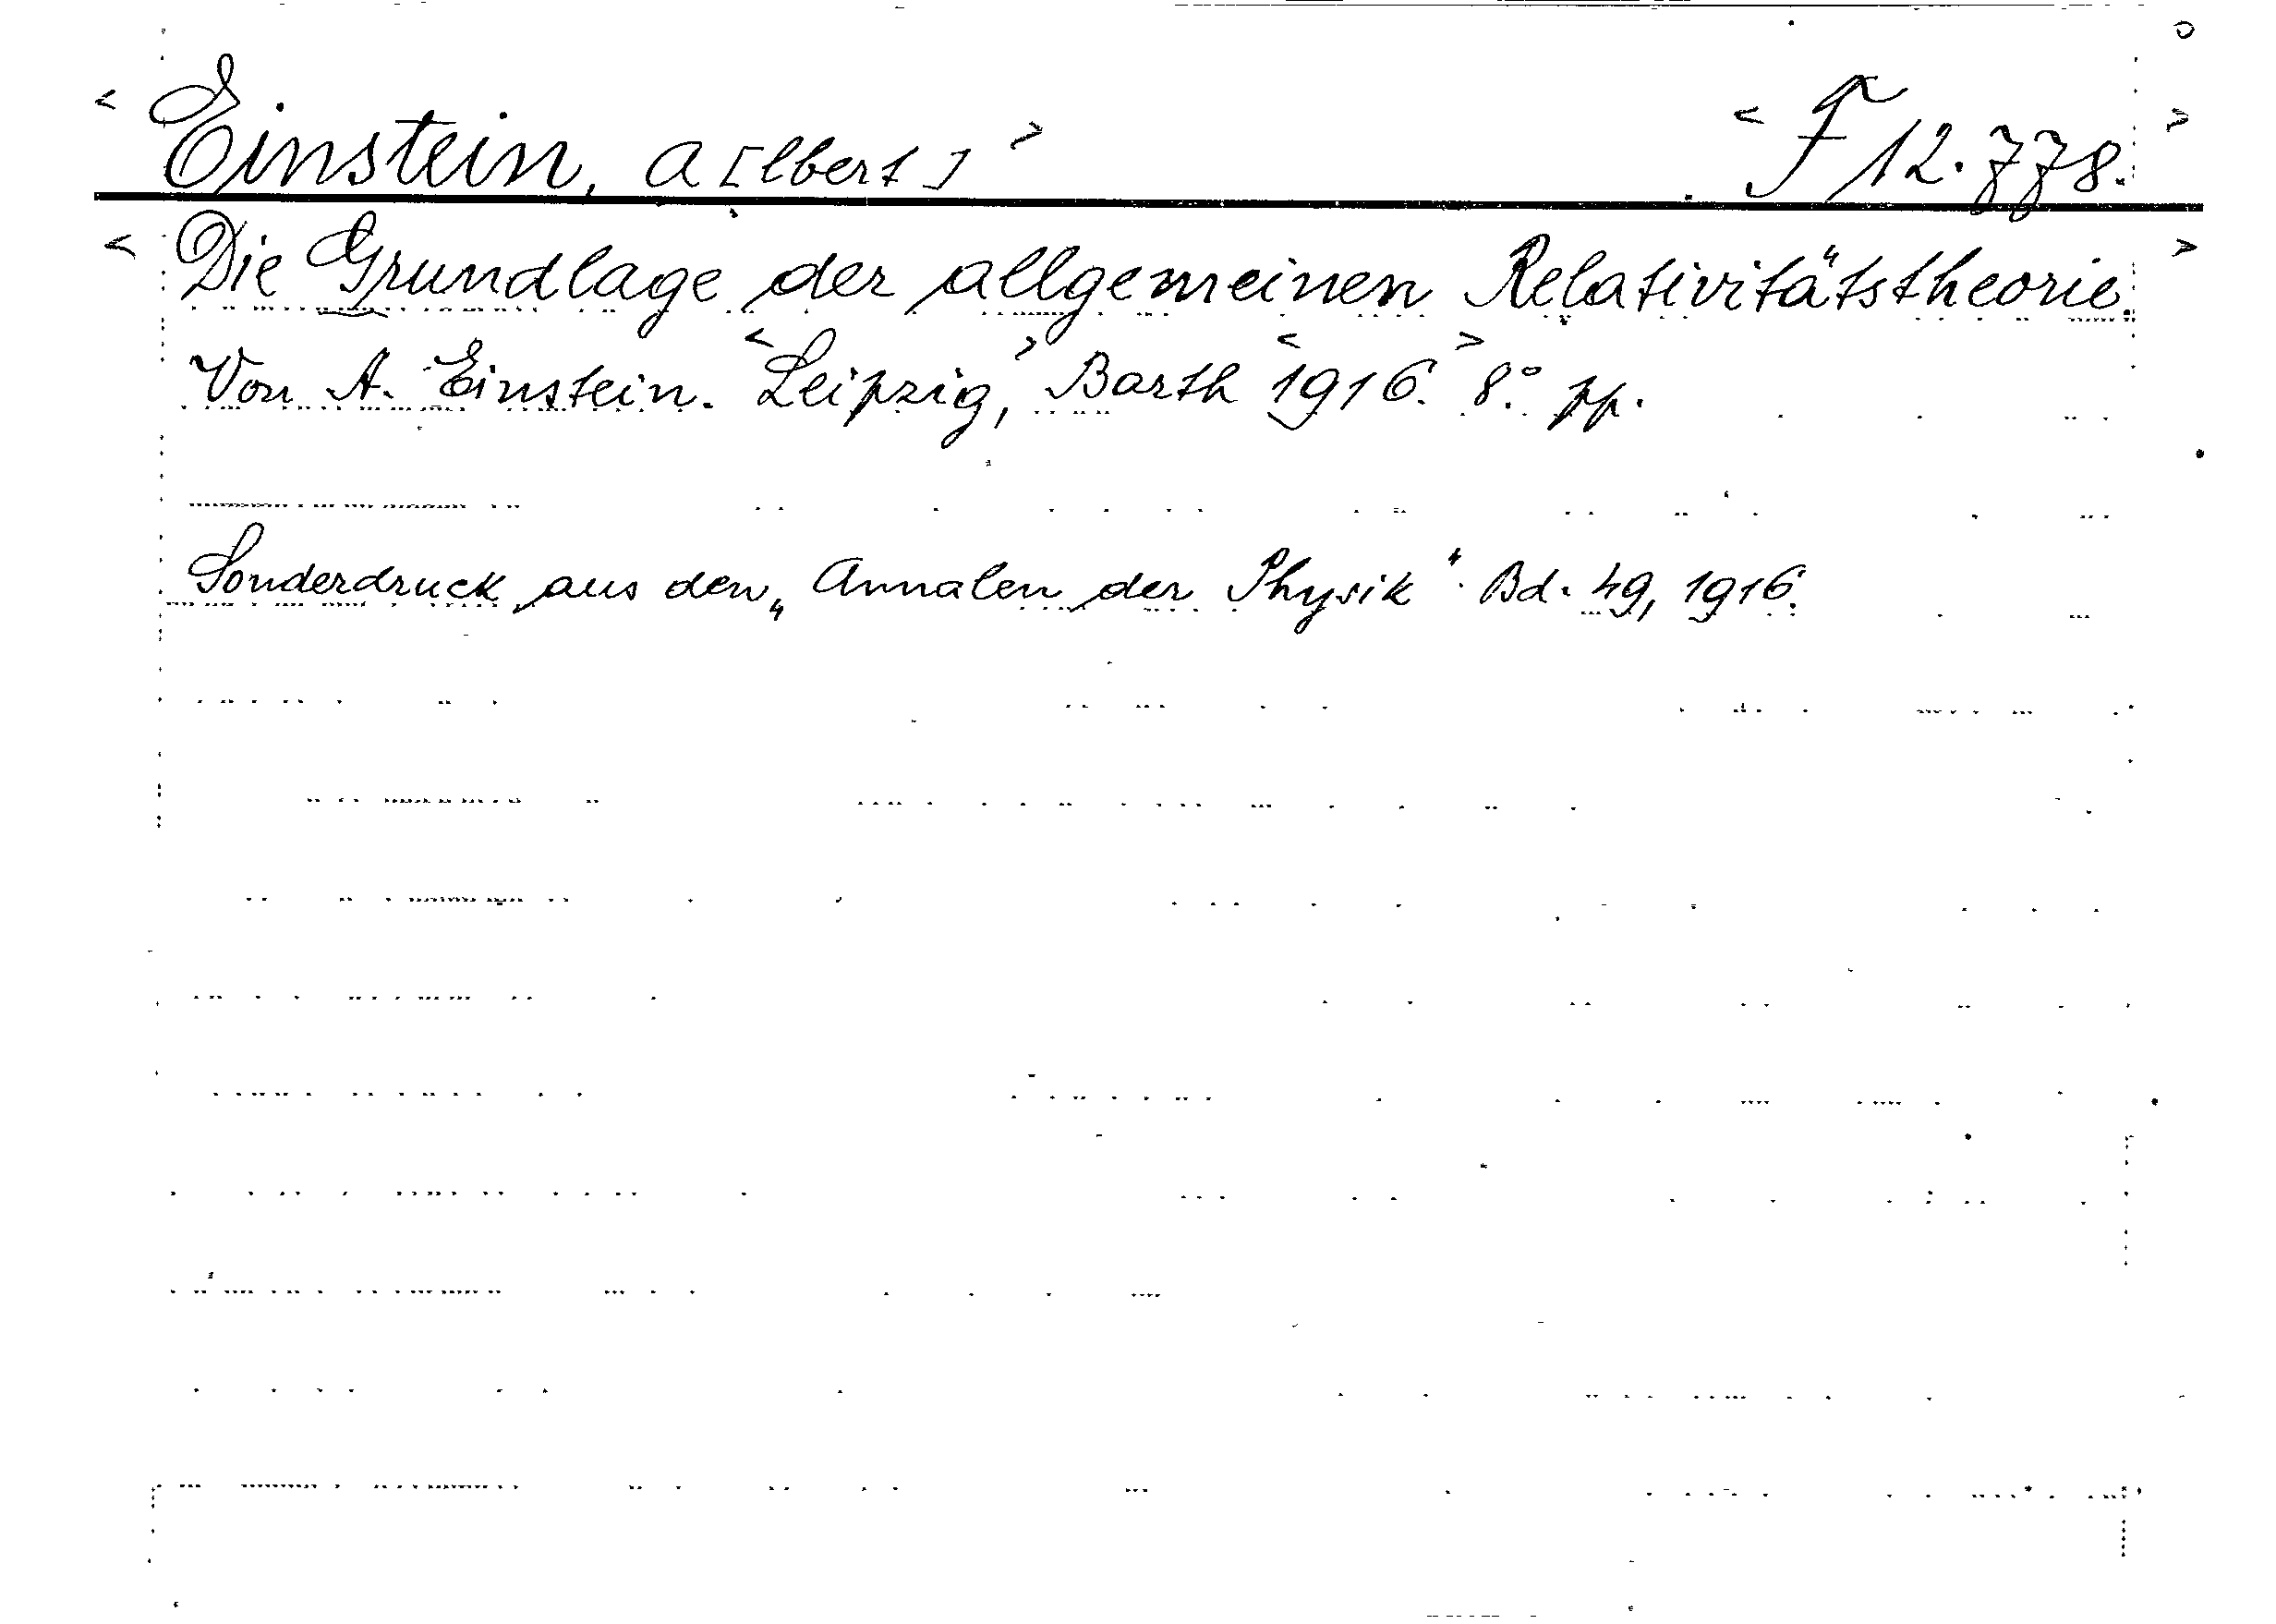 < Einstein, A[lbert] > < F 12.778. >
< Die Grundlage der allgemeinen Relativitätstheorie. >
Von A. Einstein. <Leipzig,> Barth <1916.> 8.° pp.
Sonderdruck aus den „Annalen der Physik“. Bd. 49, 1916.